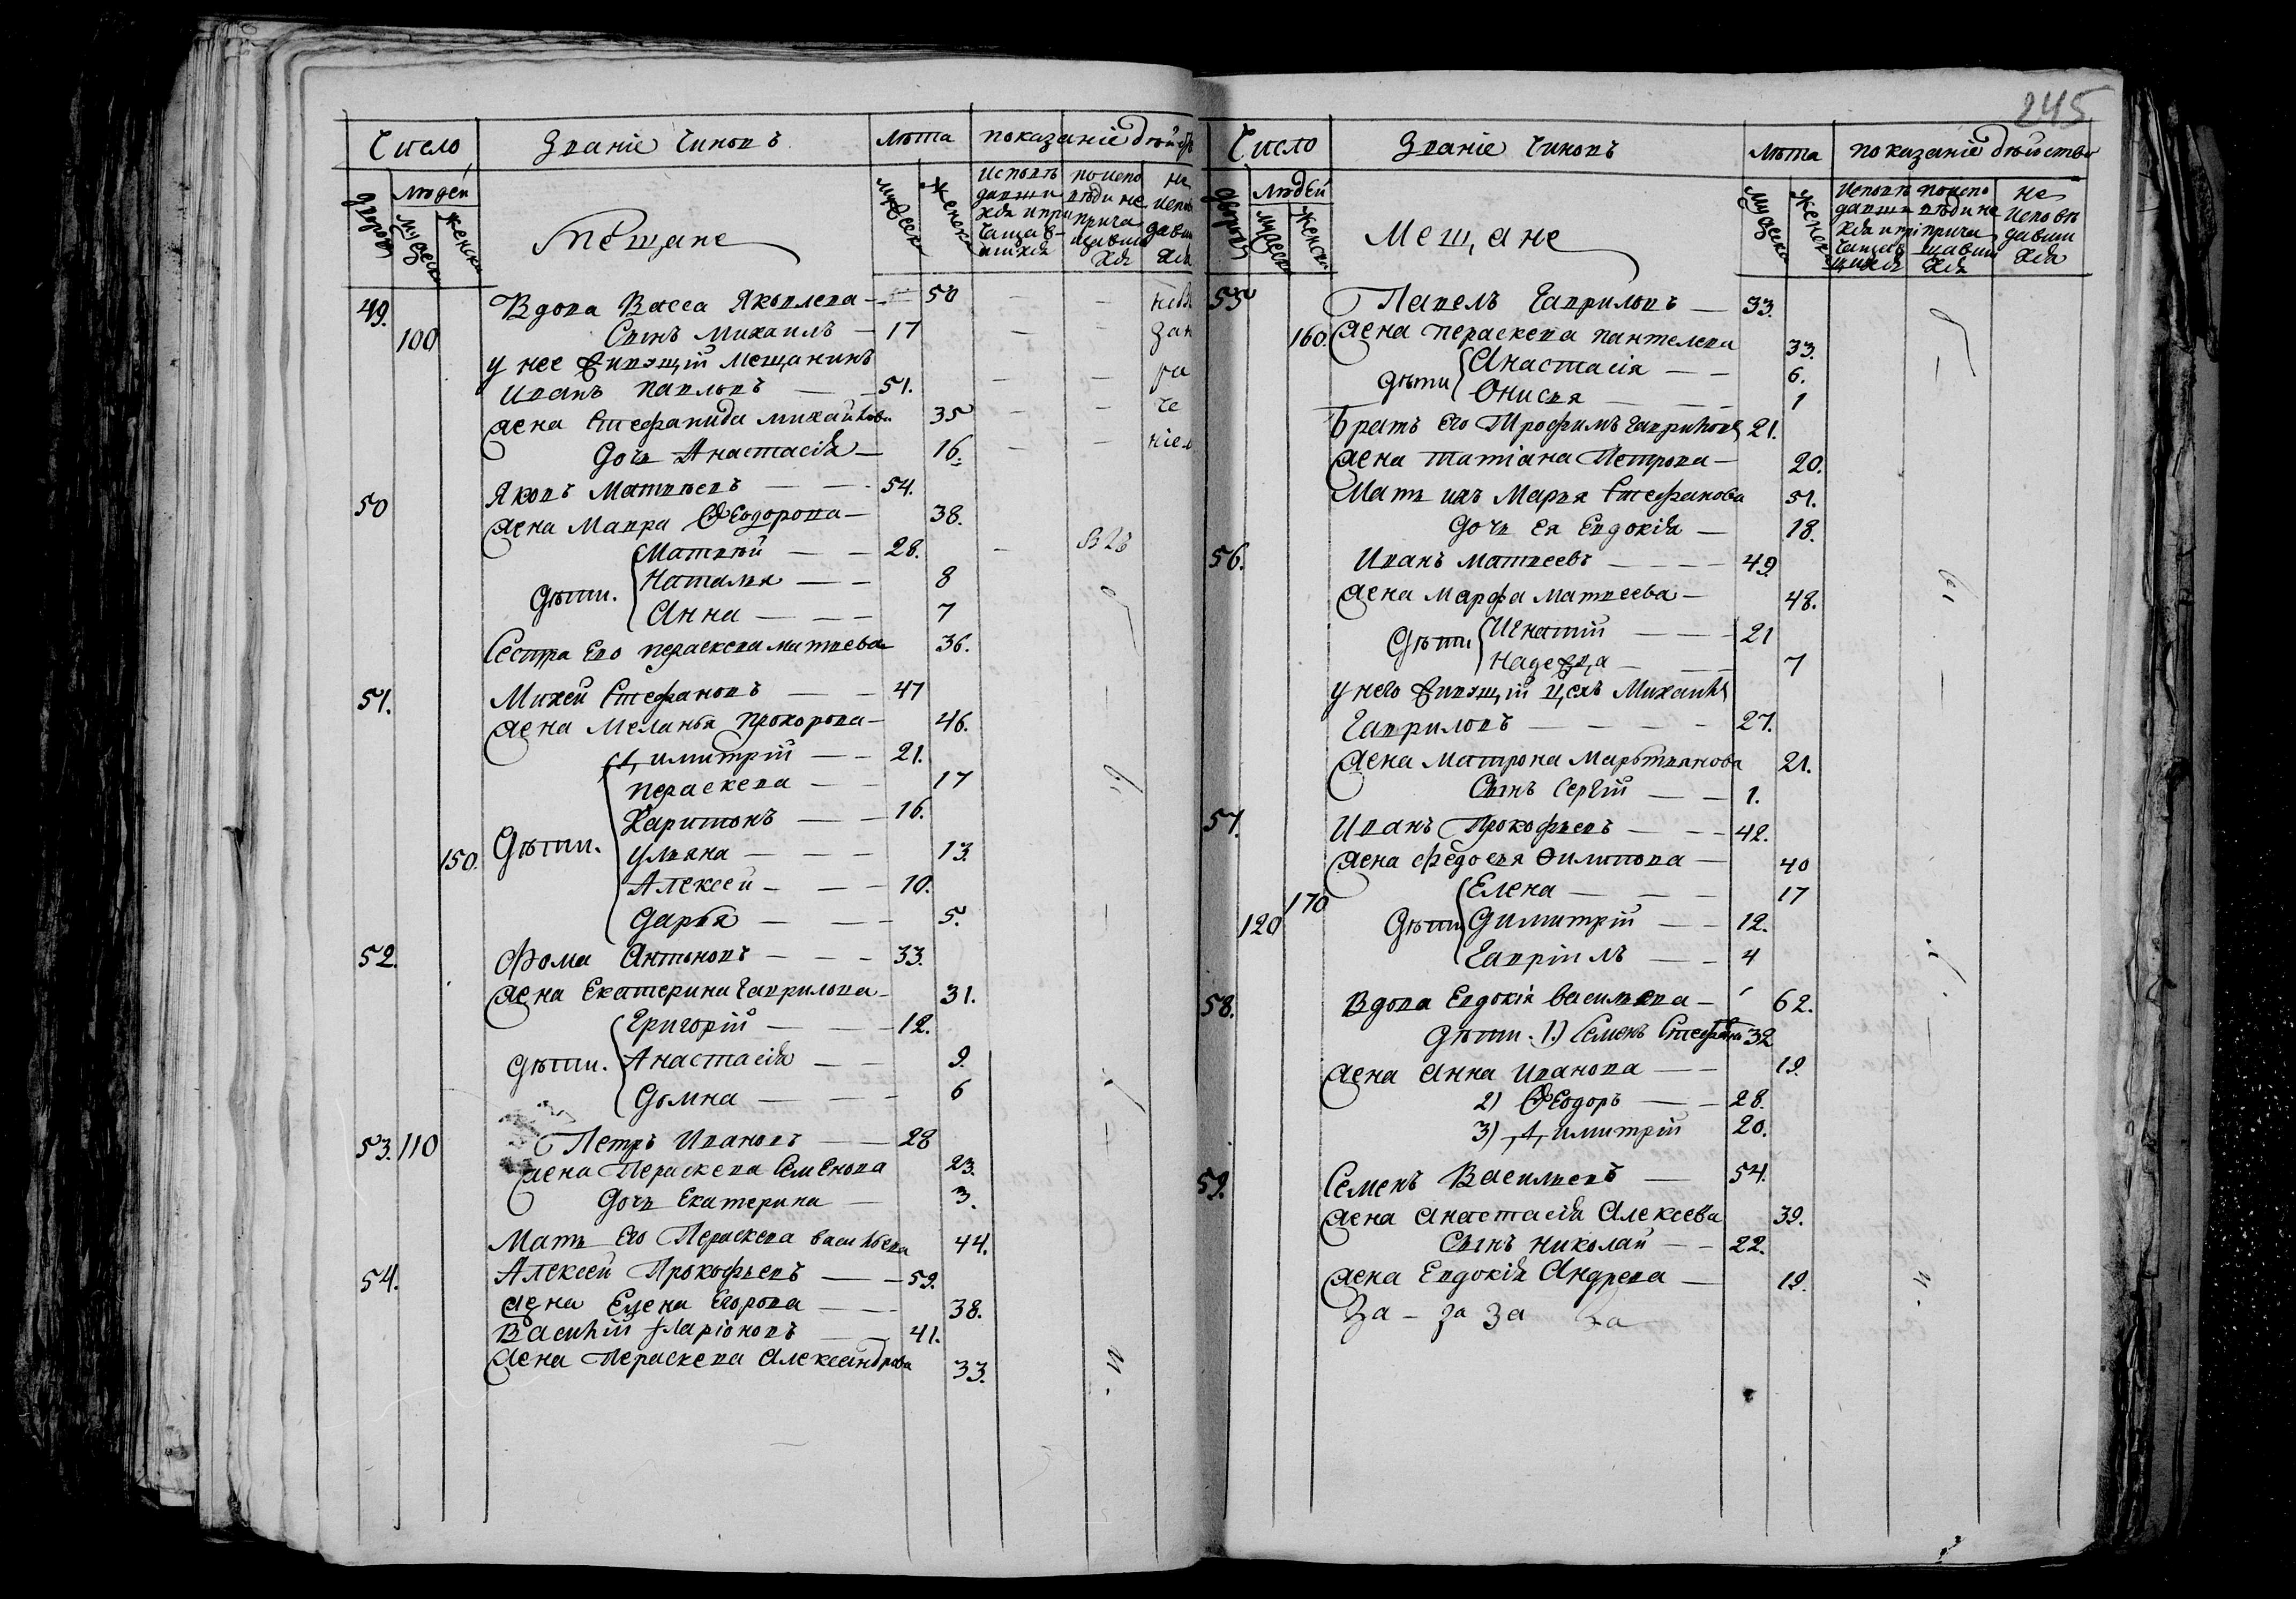 Число Званіе Чиновъ Лѣта показаніе дѣйст
дворов Людей мужеск женск Мещане мужеск женска Исповѣ давши хся и при чащав шихся по испо вѣди не прича щавши хся не испов давш хся
49. Вдова Васса Яковлева — 50 — —
100 Сынъ Михаилъ — 17 — —
у нее живущій Мещанинъ
Иванъ Павловъ — 51. — — ра
жена Стефанида Михайлов. 35 — — че
Дочь Анастасія — 16. — — ніем
50 Яковъ Матвѣевъ — — 54.
жена Мавра Ѳеодорова — 38.
Матвѣй — — 28. —
Дѣти. Наталья — — 8
Анна — — — 7
Сестра Его Пераскева Матвева 36.
51. Михей Стефановъ — — 47
жена Меланья Прохорова — 46.
Димитрій — — 21.
Пераскева — — 17
Харитонъ — — 16.
150. Дѣти. Ульяна — — — 13.
Алексей — — — 10.
Дарья — — — 5.
52. Фома Антоновъ — — — 33.
жена Екатерина Гаврилова — 31.
Григорій — — 12.
Дѣти. Анастасія — — 9.
Домна — — — 6
53. 110 Петръ Ивановъ — — 28
жена Пераскева Семенова 23.
Дочь Екатерина — 3.
Мать Его Пераскева Васильева 44.
54. Алексей Прокофьевъ — — 59.
жена Елена Егорова — — 38.
Василій Ларіоновъ — 41.
жена Пераскева Александрова 33.
245
Число Званіе Чиновъ Лѣта показаніе дѣйства
дворов Людей мужеск женск Мещане мужеск женска Исповѣ давши хся и при чащав шихся по испо вѣди не прича щавши хся не исповѣ давши хся
55 Павелъ Гавриловъ — 33.
160. жена Пераскева Пантелева 33.
Дѣти Анастасія — — 6.
Онисья — — 1
Братъ его Трофимъ Гаврилов 21.
жена Татіана Петрова — 20.
Мать ихъ Марья Стефанова 51.
Дочь ея Евдокія — 18.
56. Иванъ Матвеевъ — — — 49.
жена Марфа Матвеева — 48.
Дѣти Игнатій — — — 21
Надежда — — 7
у него живущій цех Михаил
Гавриловъ — — — — 27.
жена Матрона Мартьянова 21.
Сынъ Сергій — — 1.
57. Иванъ Прокофьевъ — — — 42.
жена Федосья Филипова — 40
170 Елена — — — 17
120 Дѣти Димитрій — — 12.
Гавріилъ — — 4
58. Вдова Евдокія Васильева — 62.
Дѣти. 1.) Семенъ Стефанов 32
жена Анна Иванова — — 19.
2) Ѳеодоръ — — 28.
3) Димитрій 20.
59. Семенъ Васильевъ — 54.
жена Анастасія Алексеева 39.
Сынъ Николай — — 22.
жена Евдокія Андрева — 19.
За — за За За